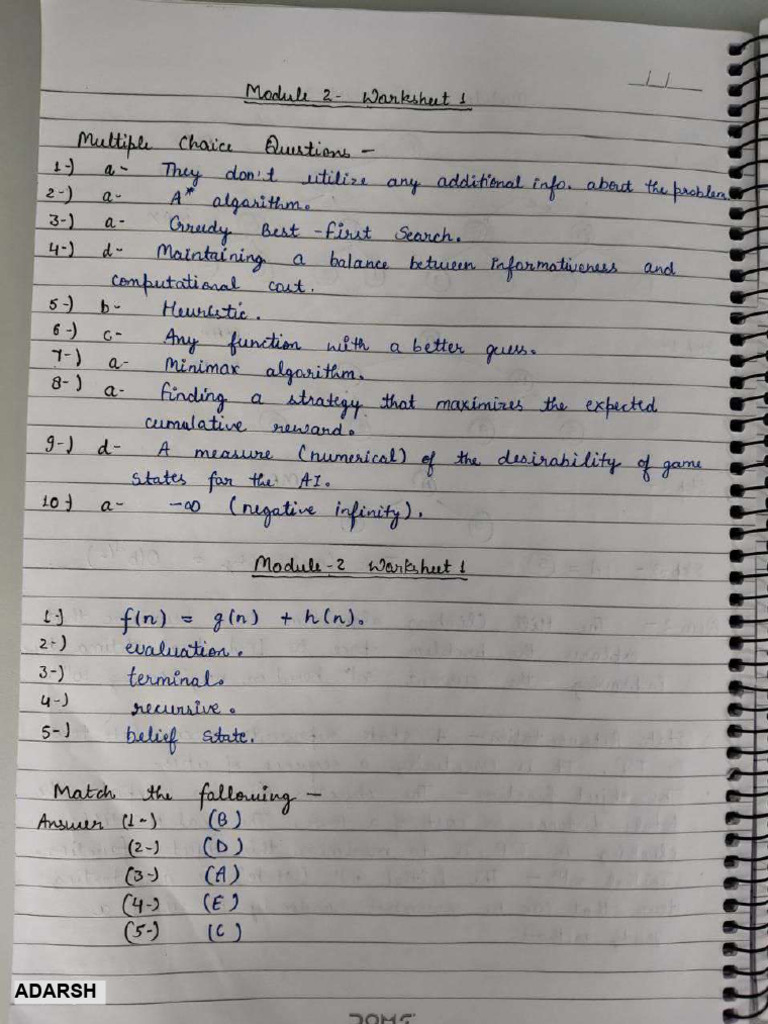 Module 2- Worksheet 1
Multiple Choice Questions -
1-) a- They don't utilize any additional info. about the problem
2-) a- A* algorithm.
3-) a- Greedy Best-First Search.
4-) d- Maintaining a balance between informativeness and
computational cost.
5-) b- Heuristic.
6-) c- Any function with a better guess.
7-) a- Minimax algorithm.
8-) a- Finding a strategy that maximizes the expected
cumulative reward.
9-) d- A measure (numerical) of the desirability of game
states for the AI.
10-) a- -∞ (negative infinity).
Module-2 Worksheet 1
1-) f(n) = g(n) + h(n).
2-) evaluation.
3-) terminal.
4-) recursive.
5-) belief state.
Match the following -
Answer (1-) (B)
(2-) (D)
(3-) (A)
(4-) (E)
(5-) (C)
ADARSH
DOMS